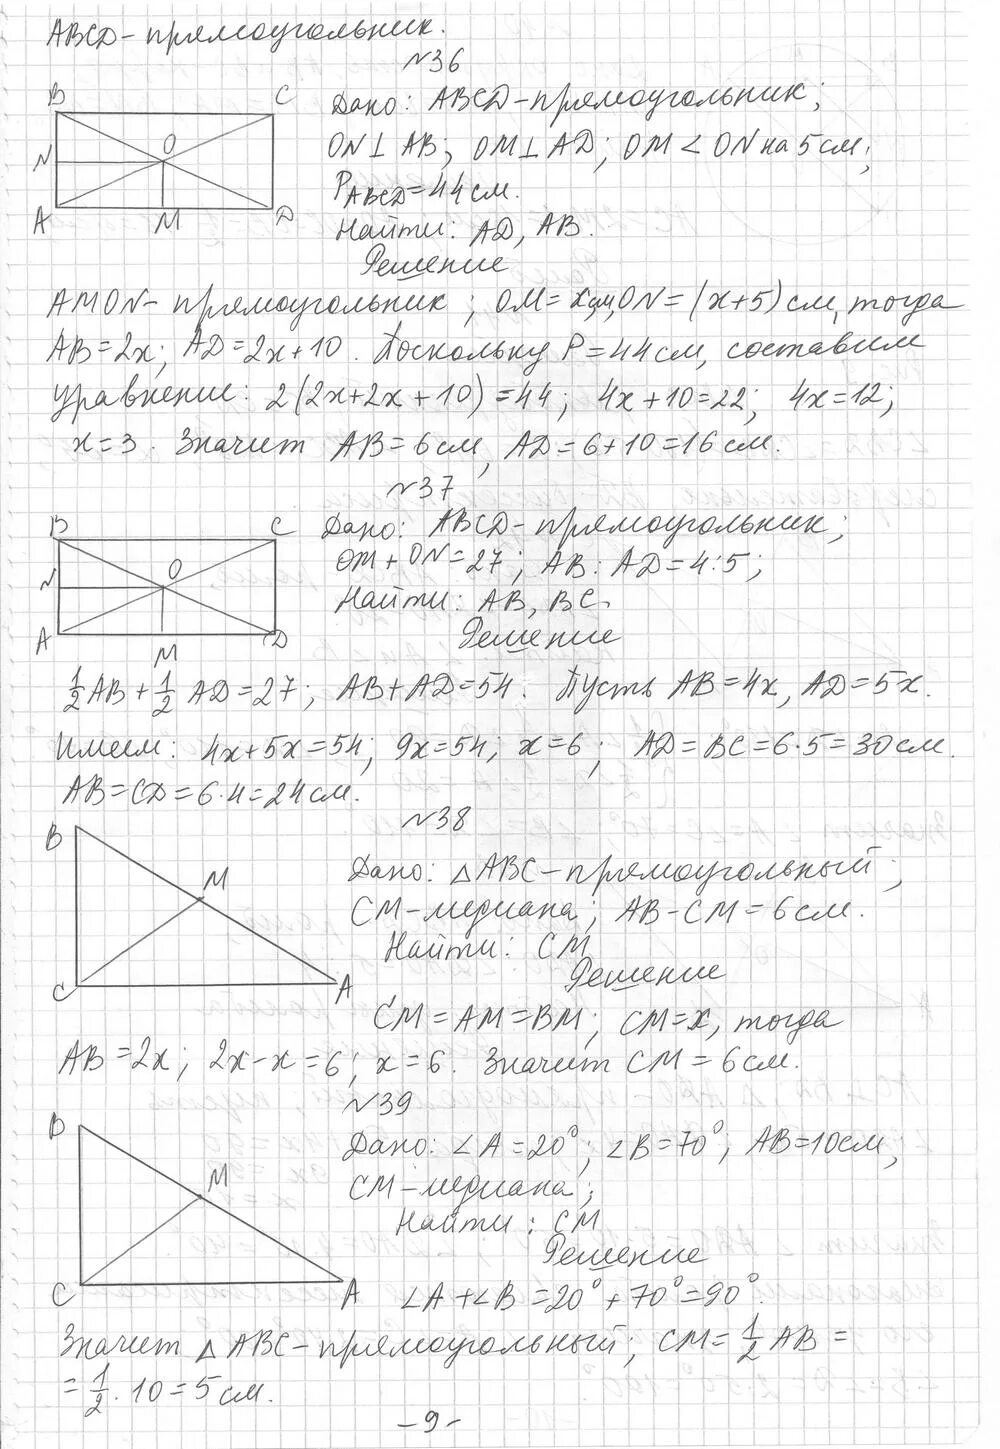 ABCD - прямоугольник.
№36
B C
N O
A M D
Дано: ABCD - прямоугольник;
ON ⊥ AB; OM ⊥ AD; OM < ON на 5 см;
P_ABCD = 44 см.
Найти: AD, AB.
Решение
AMON - прямоугольник; OM = x см, ON = (x+5) см, тогда
AB = 2x; AD = 2x + 10. Поскольку P = 44 см, составим
уравнение: 2(2x + 2x + 10) = 44; 4x + 10 = 22; 4x = 12;
x = 3. Значит AB = 6 см, AD = 6 + 10 = 16 см.
№37
B C
N O
A M D
Дано: ABCD - прямоугольник;
OM + ON = 27; AB : AD = 4:5;
Найти: AB, BC.
Решение
1/2 AB + 1/2 AD = 27; AB + AD = 54. Пусть AB = 4x, AD = 5x.
Имеем: 4x + 5x = 54; 9x = 54; x = 6; AD = BC = 6·5 = 30 см.
AB = CD = 6·4 = 24 см.
№38
B
M
C A
Дано: △ABC - прямоугольный;
CM - медиана; AB - CM = 6 см.
Найти: CM
Решение
CM = AM = BM; CM = x, тогда
AB = 2x; 2x - x = 6; x = 6. Значит CM = 6 см.
№39
B
M
C A
Дано: ∠A = 20°; ∠B = 70°; AB = 10 см,
CM - медиана;
Найти: CM
Решение
∠A + ∠B = 20° + 70° = 90°.
Значит △ABC - прямоугольный; CM = 1/2 AB =
= 1/2 · 10 = 5 см.
- 9 -